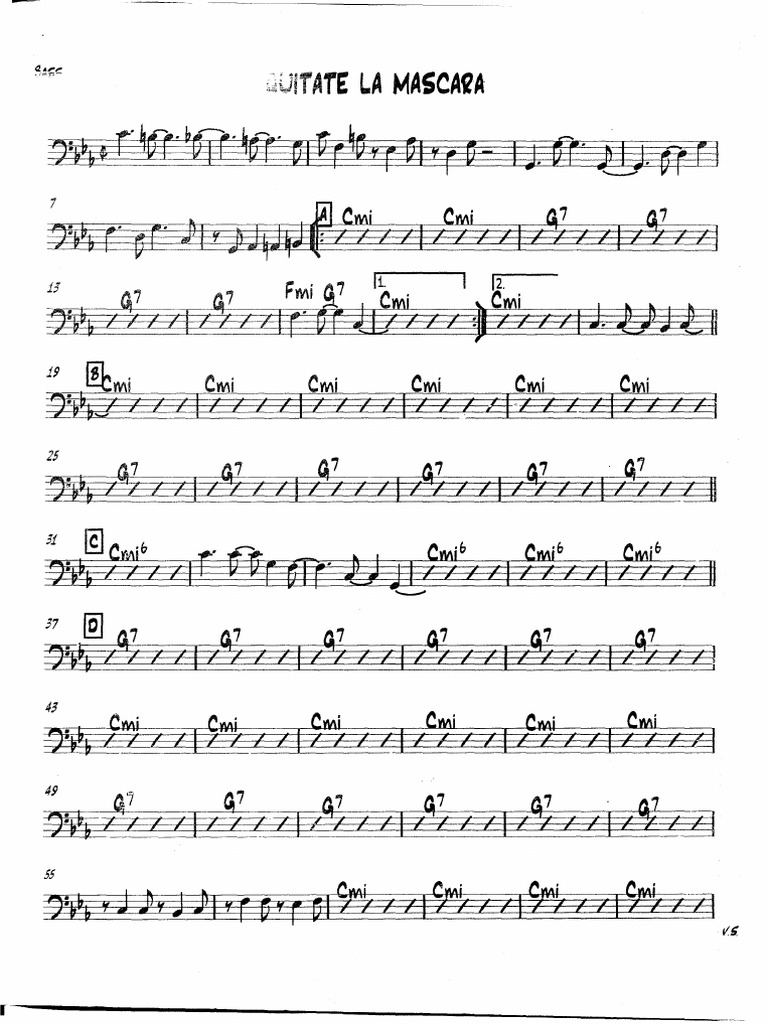 BASS
QUITATE LA MASCARA
7
A Cmi Cmi G7 G7
13
G7 G7 Fmi G7 1. Cmi 2. Cmi
19
B Cmi Cmi Cmi Cmi Cmi Cmi
25
G7 G7 G7 G7 G7 G7
31
C Cmi6 Cmi6 Cmi6 Cmi6
37
D G7 G7 G7 G7 G7 G7
43
Cmi Cmi Cmi Cmi Cmi Cmi
49
G7 G7 G7 G7 G7 G7
55
Cmi Cmi Cmi Cmi
V.S.